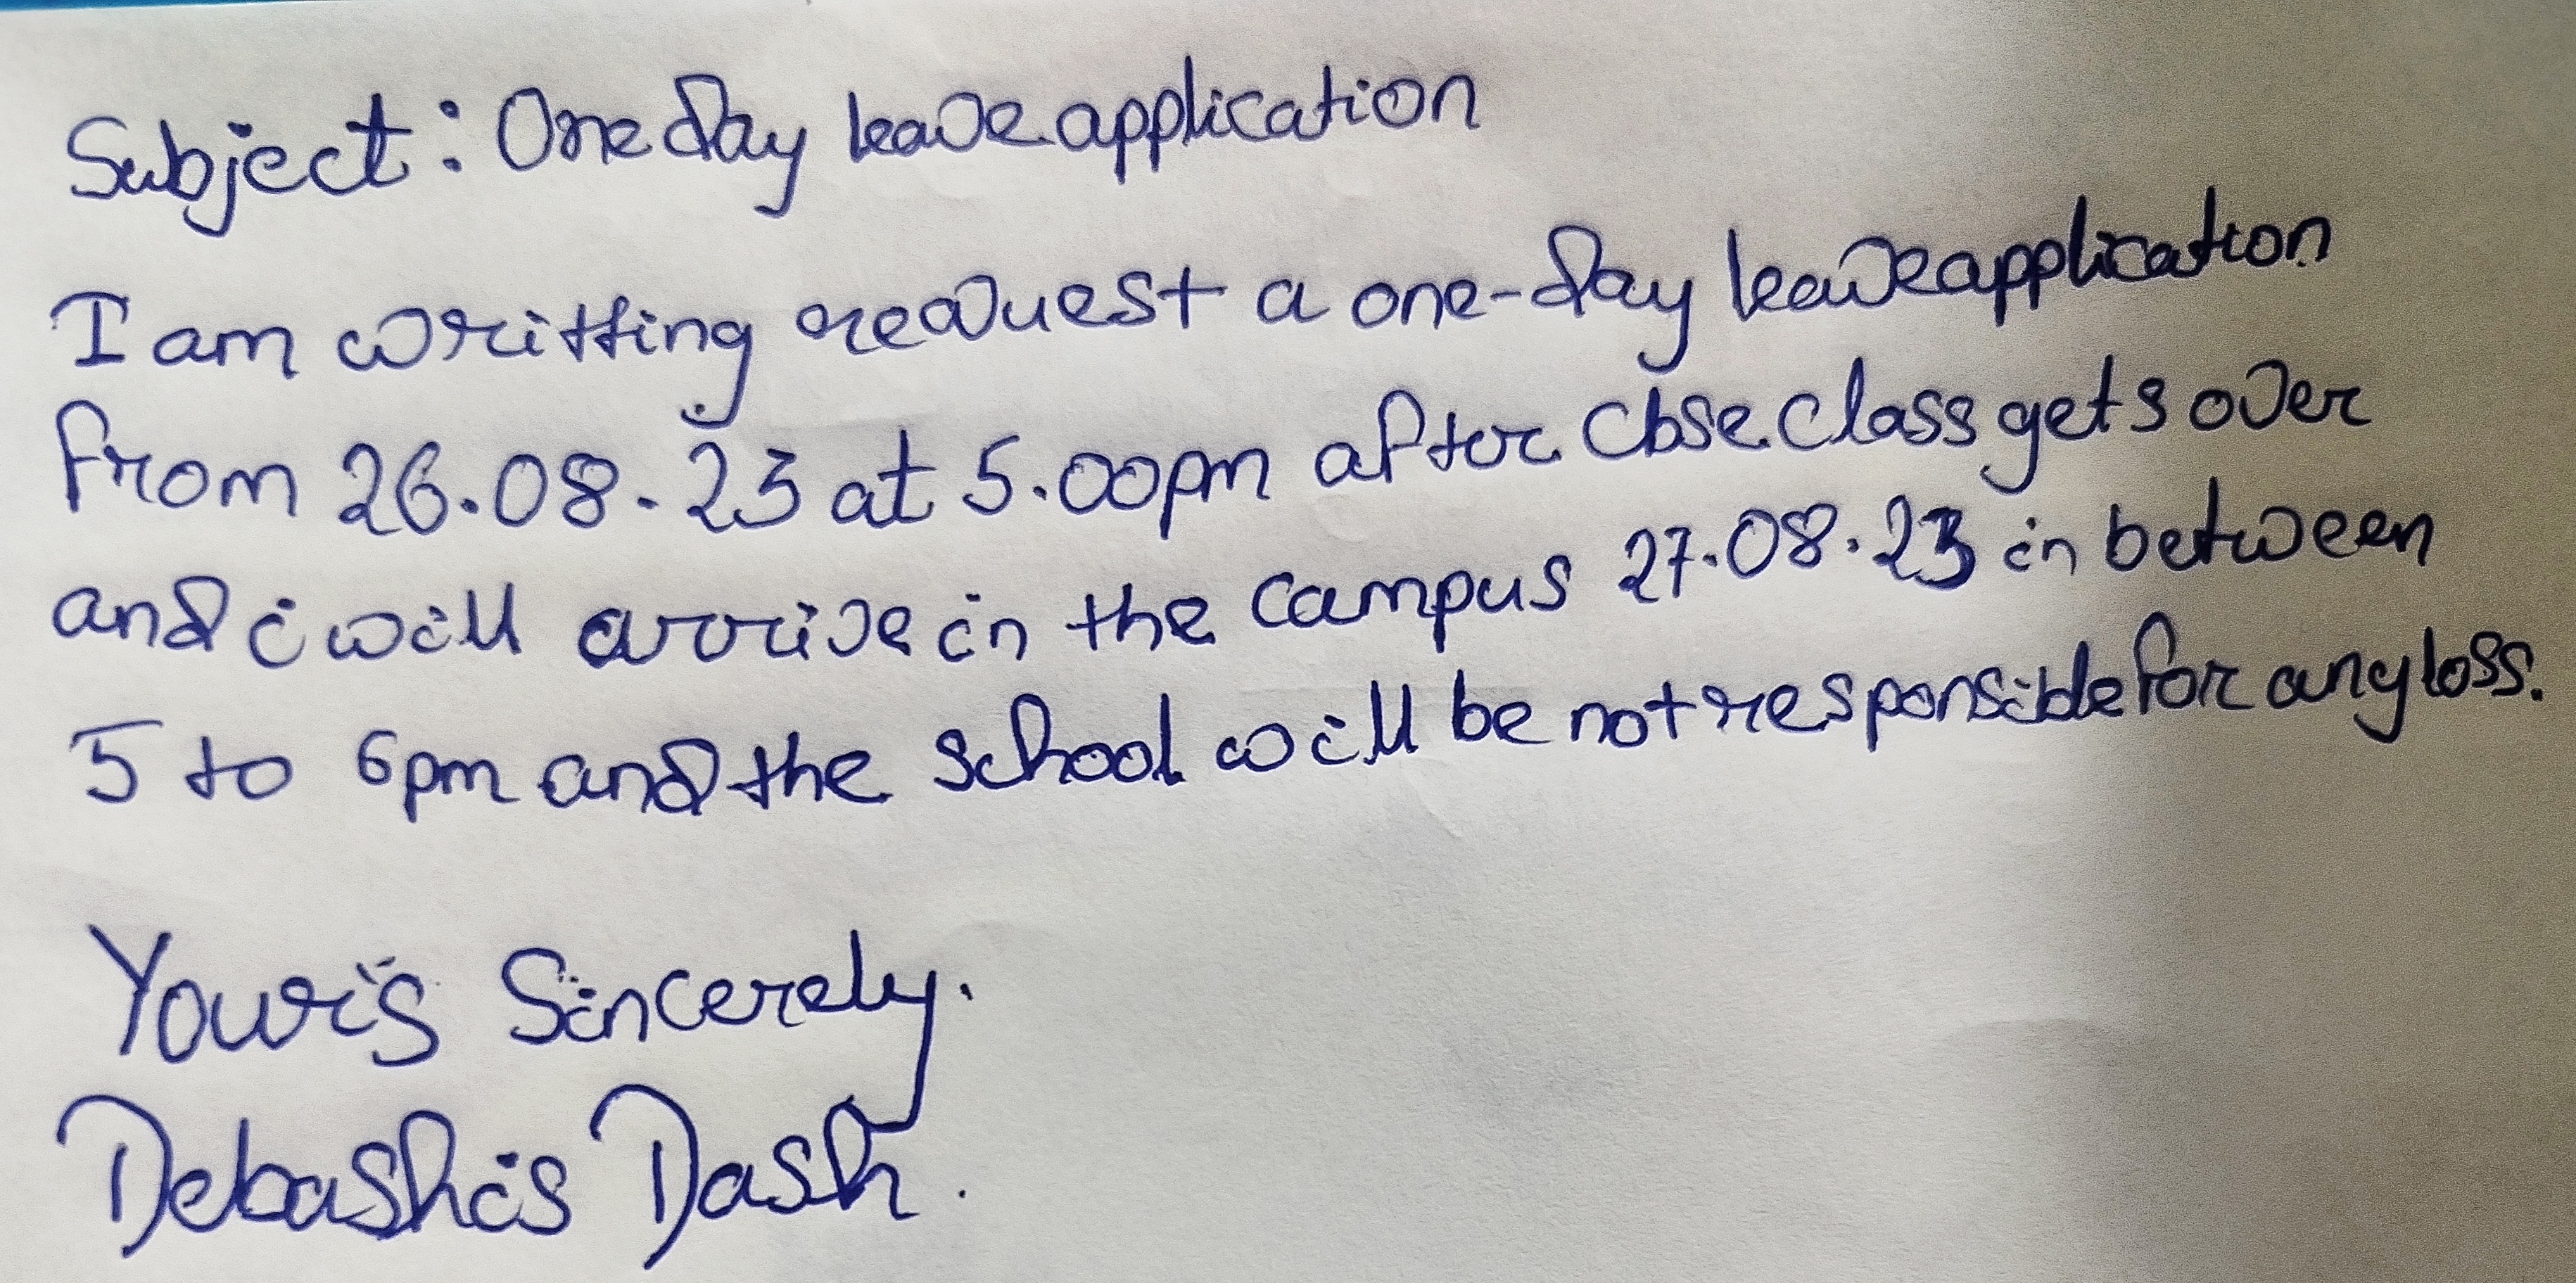 Subject: One day leave application
I am writting request a one-day leave application
from 26.08.23 at 5.00pm after cbse class gets over
and i will arrive in the campus 27.08.23 in between
5 to 6pm and the school will be not responsible for any loss.
Your's Sincerely.
Debashis Dash.